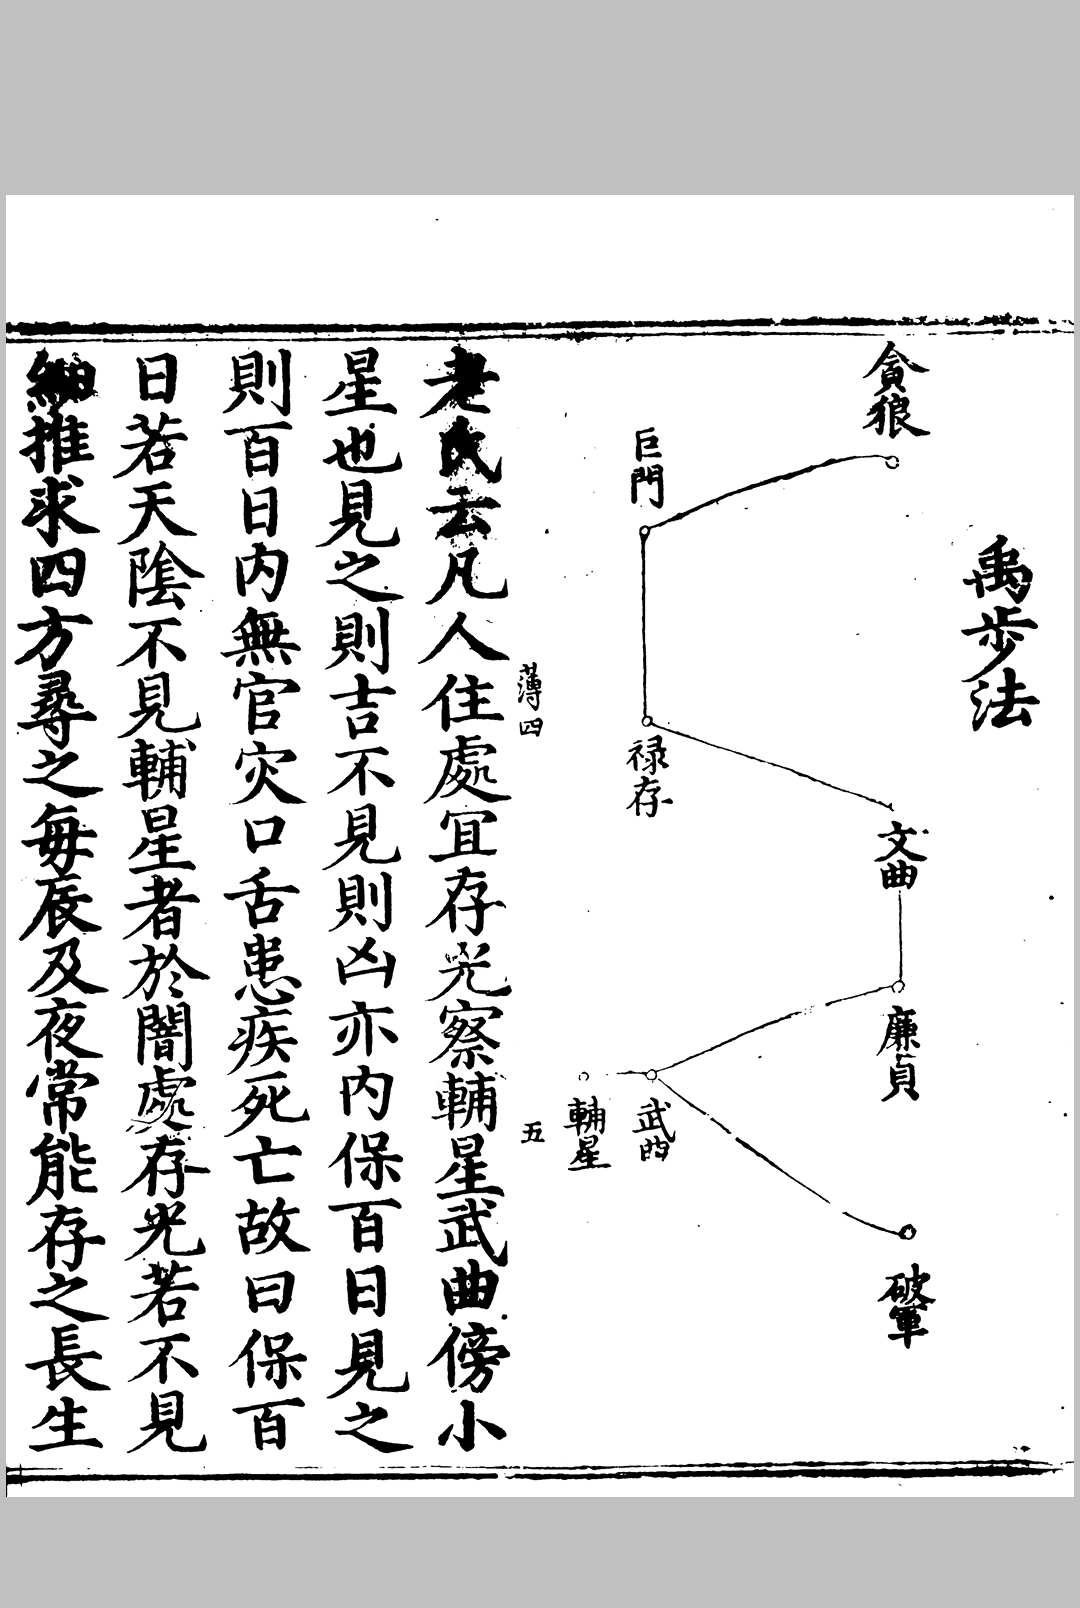 禹步法
貪狼
巨門
禄存
文曲
廉貞
武曲
輔星
破軍
薄四
五
老氏云凡人住處冝存光察輔星武曲傍小
星也見之則吉不見則凶亦内保百日見之
則百日内無官灾口舌患疾死亡故曰保百
日若天陰不見輔星者於闇處存光若不見
細推求四方尋之每辰及夜常能存之長生